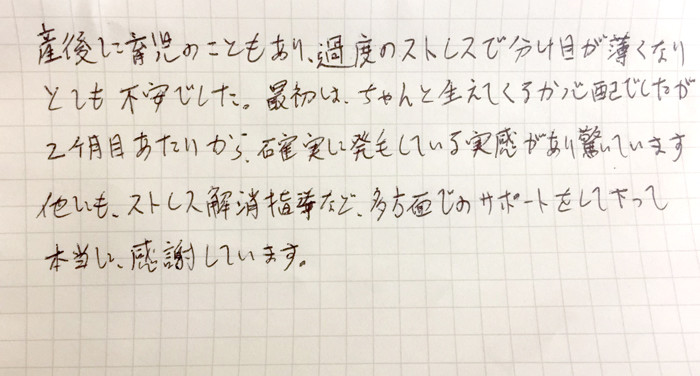 産後に育児のこともあり、過度のストレスで分け目が薄くなり
とても不安でした。最初は、ちゃんと生えてくるか心配でしたが
2ヶ月目あたりから、確実に発毛している実感があり驚いています
他にも、ストレス解消指導など、多方面でのサポートをして下って
本当に、感謝しています。